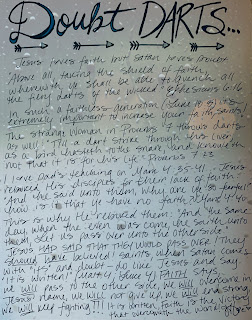 Doubt DARTS...
Jesus loves faith but satan loves Doubt
"Above all, taking the shield of faith,
wherewith ye shall be able to quench all
the fiery darts of the wicked" Ephesians 6:16
In such a faithless generation (Luke 18:8) it's
extremely important to increase your faith, saints.
The strange woman in Proverbs 7 throws darts
as well! "Till a dart strike through his liver;
as a bird hasteth to the snare, and knoweth
not that it is for his life" Proverbs 7:23
I love Dad's teaching on Mark 4:35-41 Jesus
rebuked His disciples for their lack of faith
"And He said unto them, Why are ye so fearful?
how is it that ye have no faith?" Mark 4:40
Here is why He rebuked them: "And the same
day, when the even was come, he saith unto
them, Let us pass over unto the other side."
Jesus HAD SAID THAT THEY WOULD PASS OVER! They
should have believed! saints, what satan comes
with "ifs" and doubt do like Jesus and say
it is written! FAITH says,
we will pass to the other side, we will overcome in
Jesus' name, we will not give up, we will
we will keep fighting!!! It is written, faith is the Victory
that overcometh the world